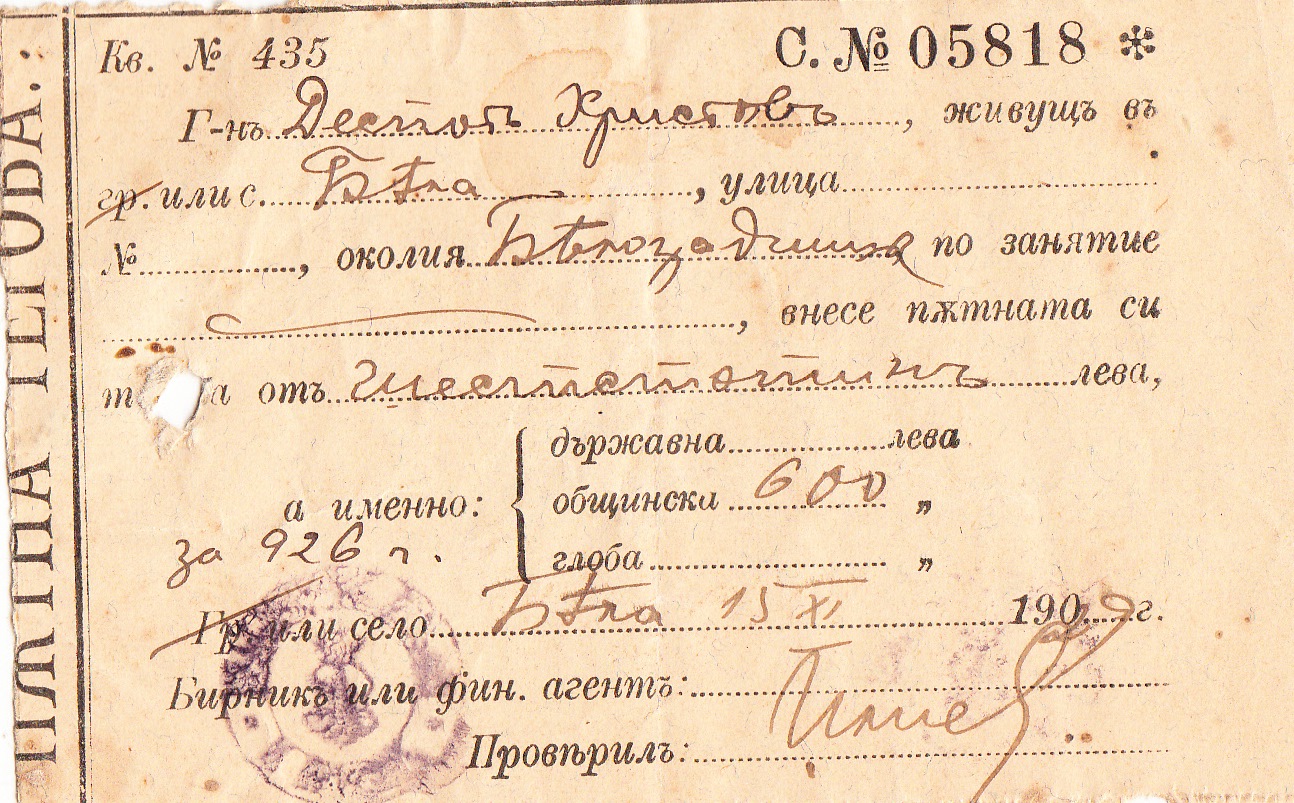 ПѪТНА ТЕГОБА.
Кв. № 435
С. № 05818 *
Г-нъ Деспотъ Христовъ, живущъ въ
гр. или с. Бѣла, улица
№, околия Бѣлоградчишка по занятие
, внесе пѫтната си
т а отъ шестстотинъ лева,
държавна лева
а именно: общинска 600 „
за 926 г.
глоба „
Гр. или село Бѣла 15 XI 190 г.
Бирникъ или фин. агентъ:
Провѣрилъ: